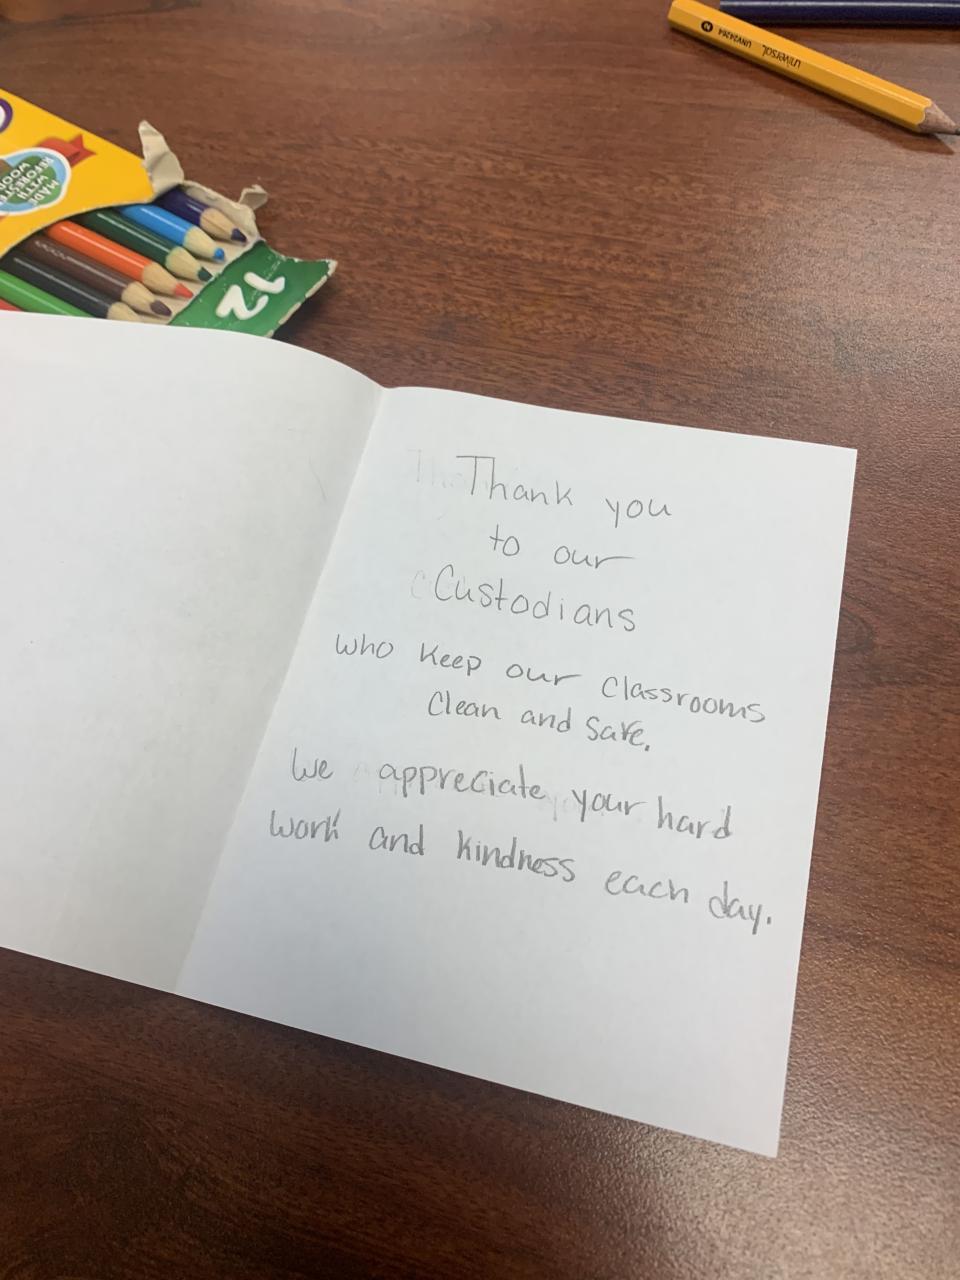 Universal UNV24264 2
MADE
WITH
REFORESTED
WOOD
12
Thank you
to our
Custodians
who keep our classrooms
Clean and safe.
We appreciate your hard
work and kindness each day.